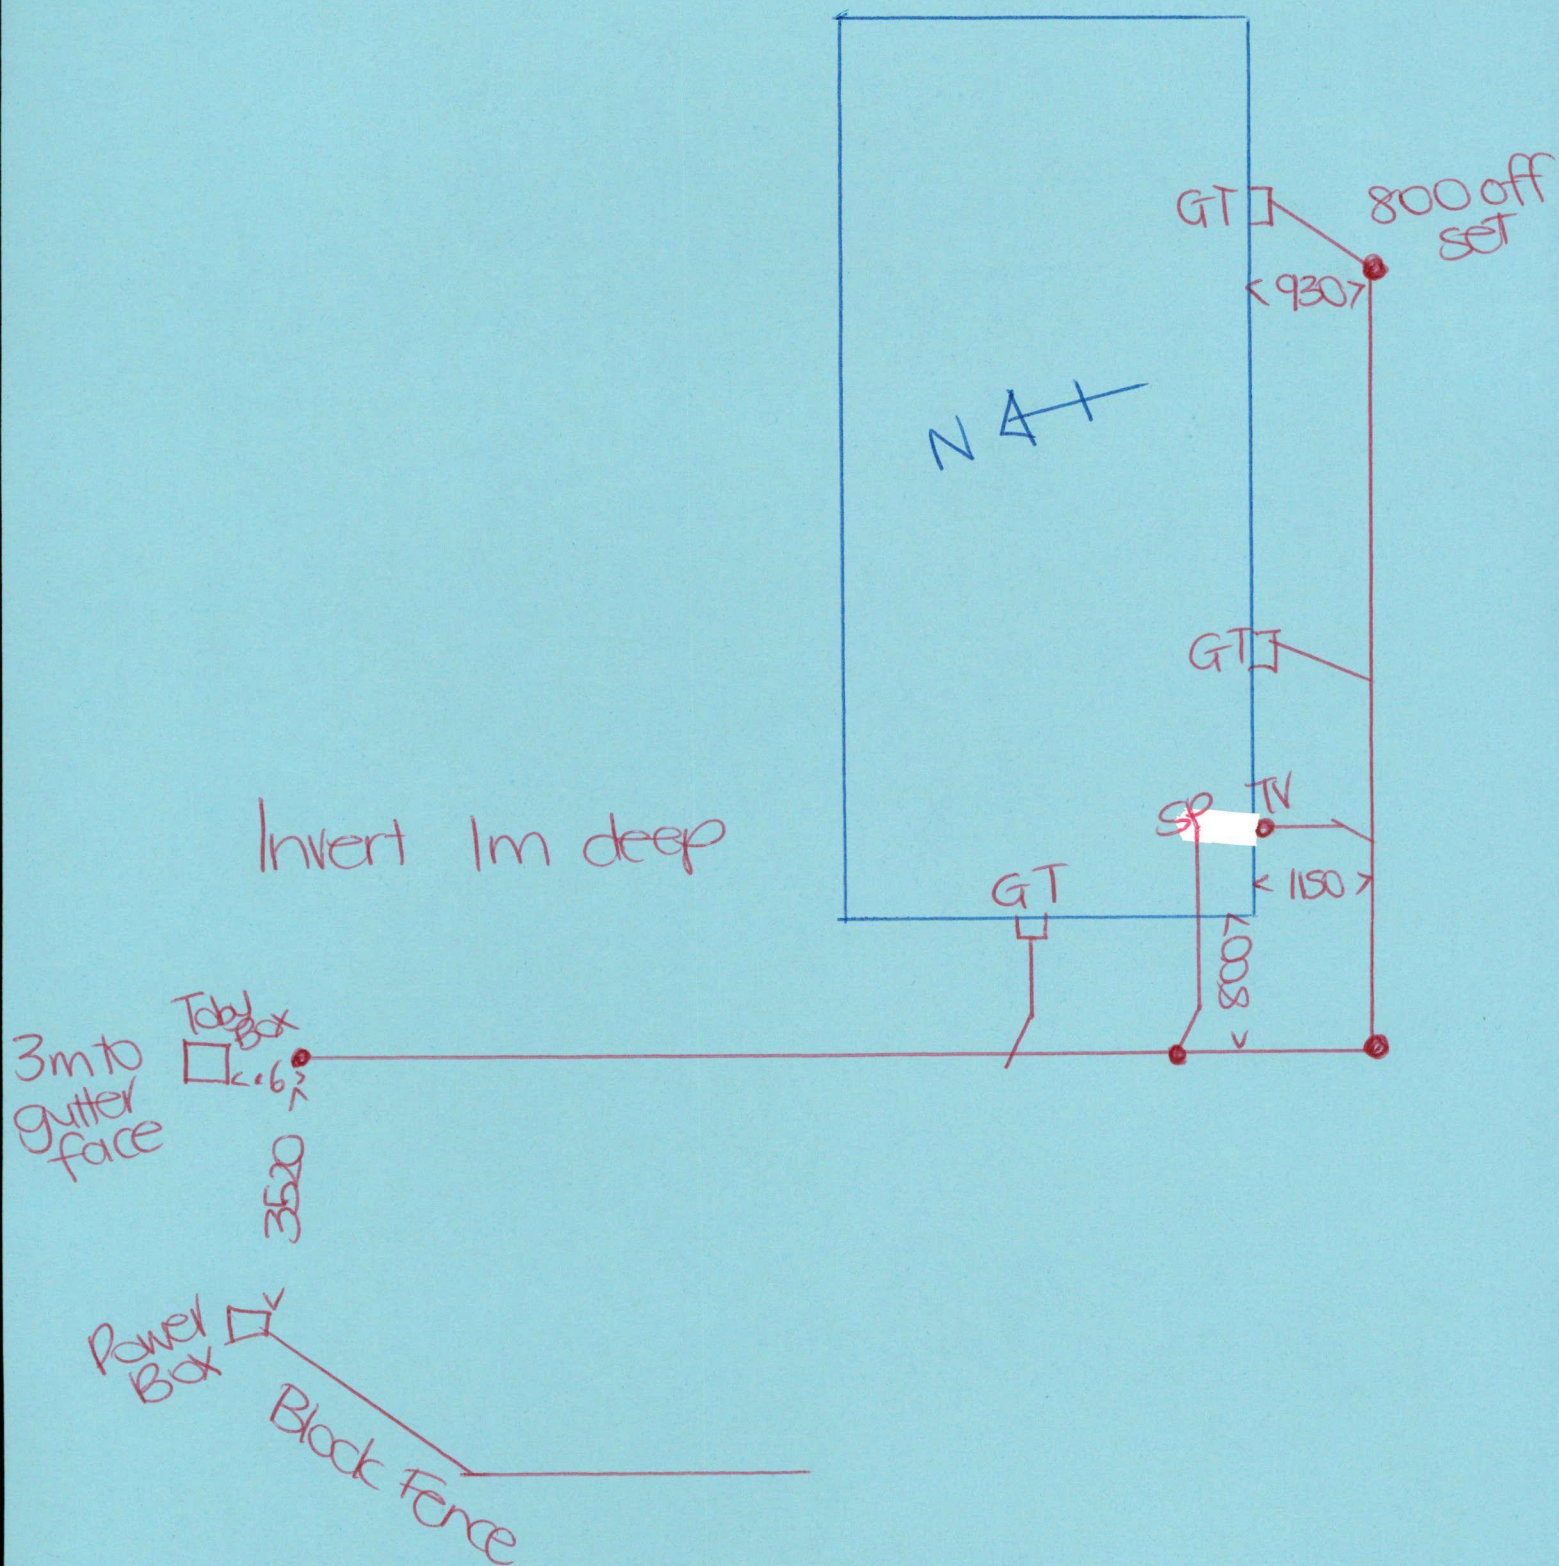 GT
800 off
set
< 930 >
N
GT
SP
TV
Invert 1m deep
< 1150 >
GT
< 800 >
Toby
Box
3m to
gutter
face
< .6 >
< 3520 >
Power
Box
Block Fence